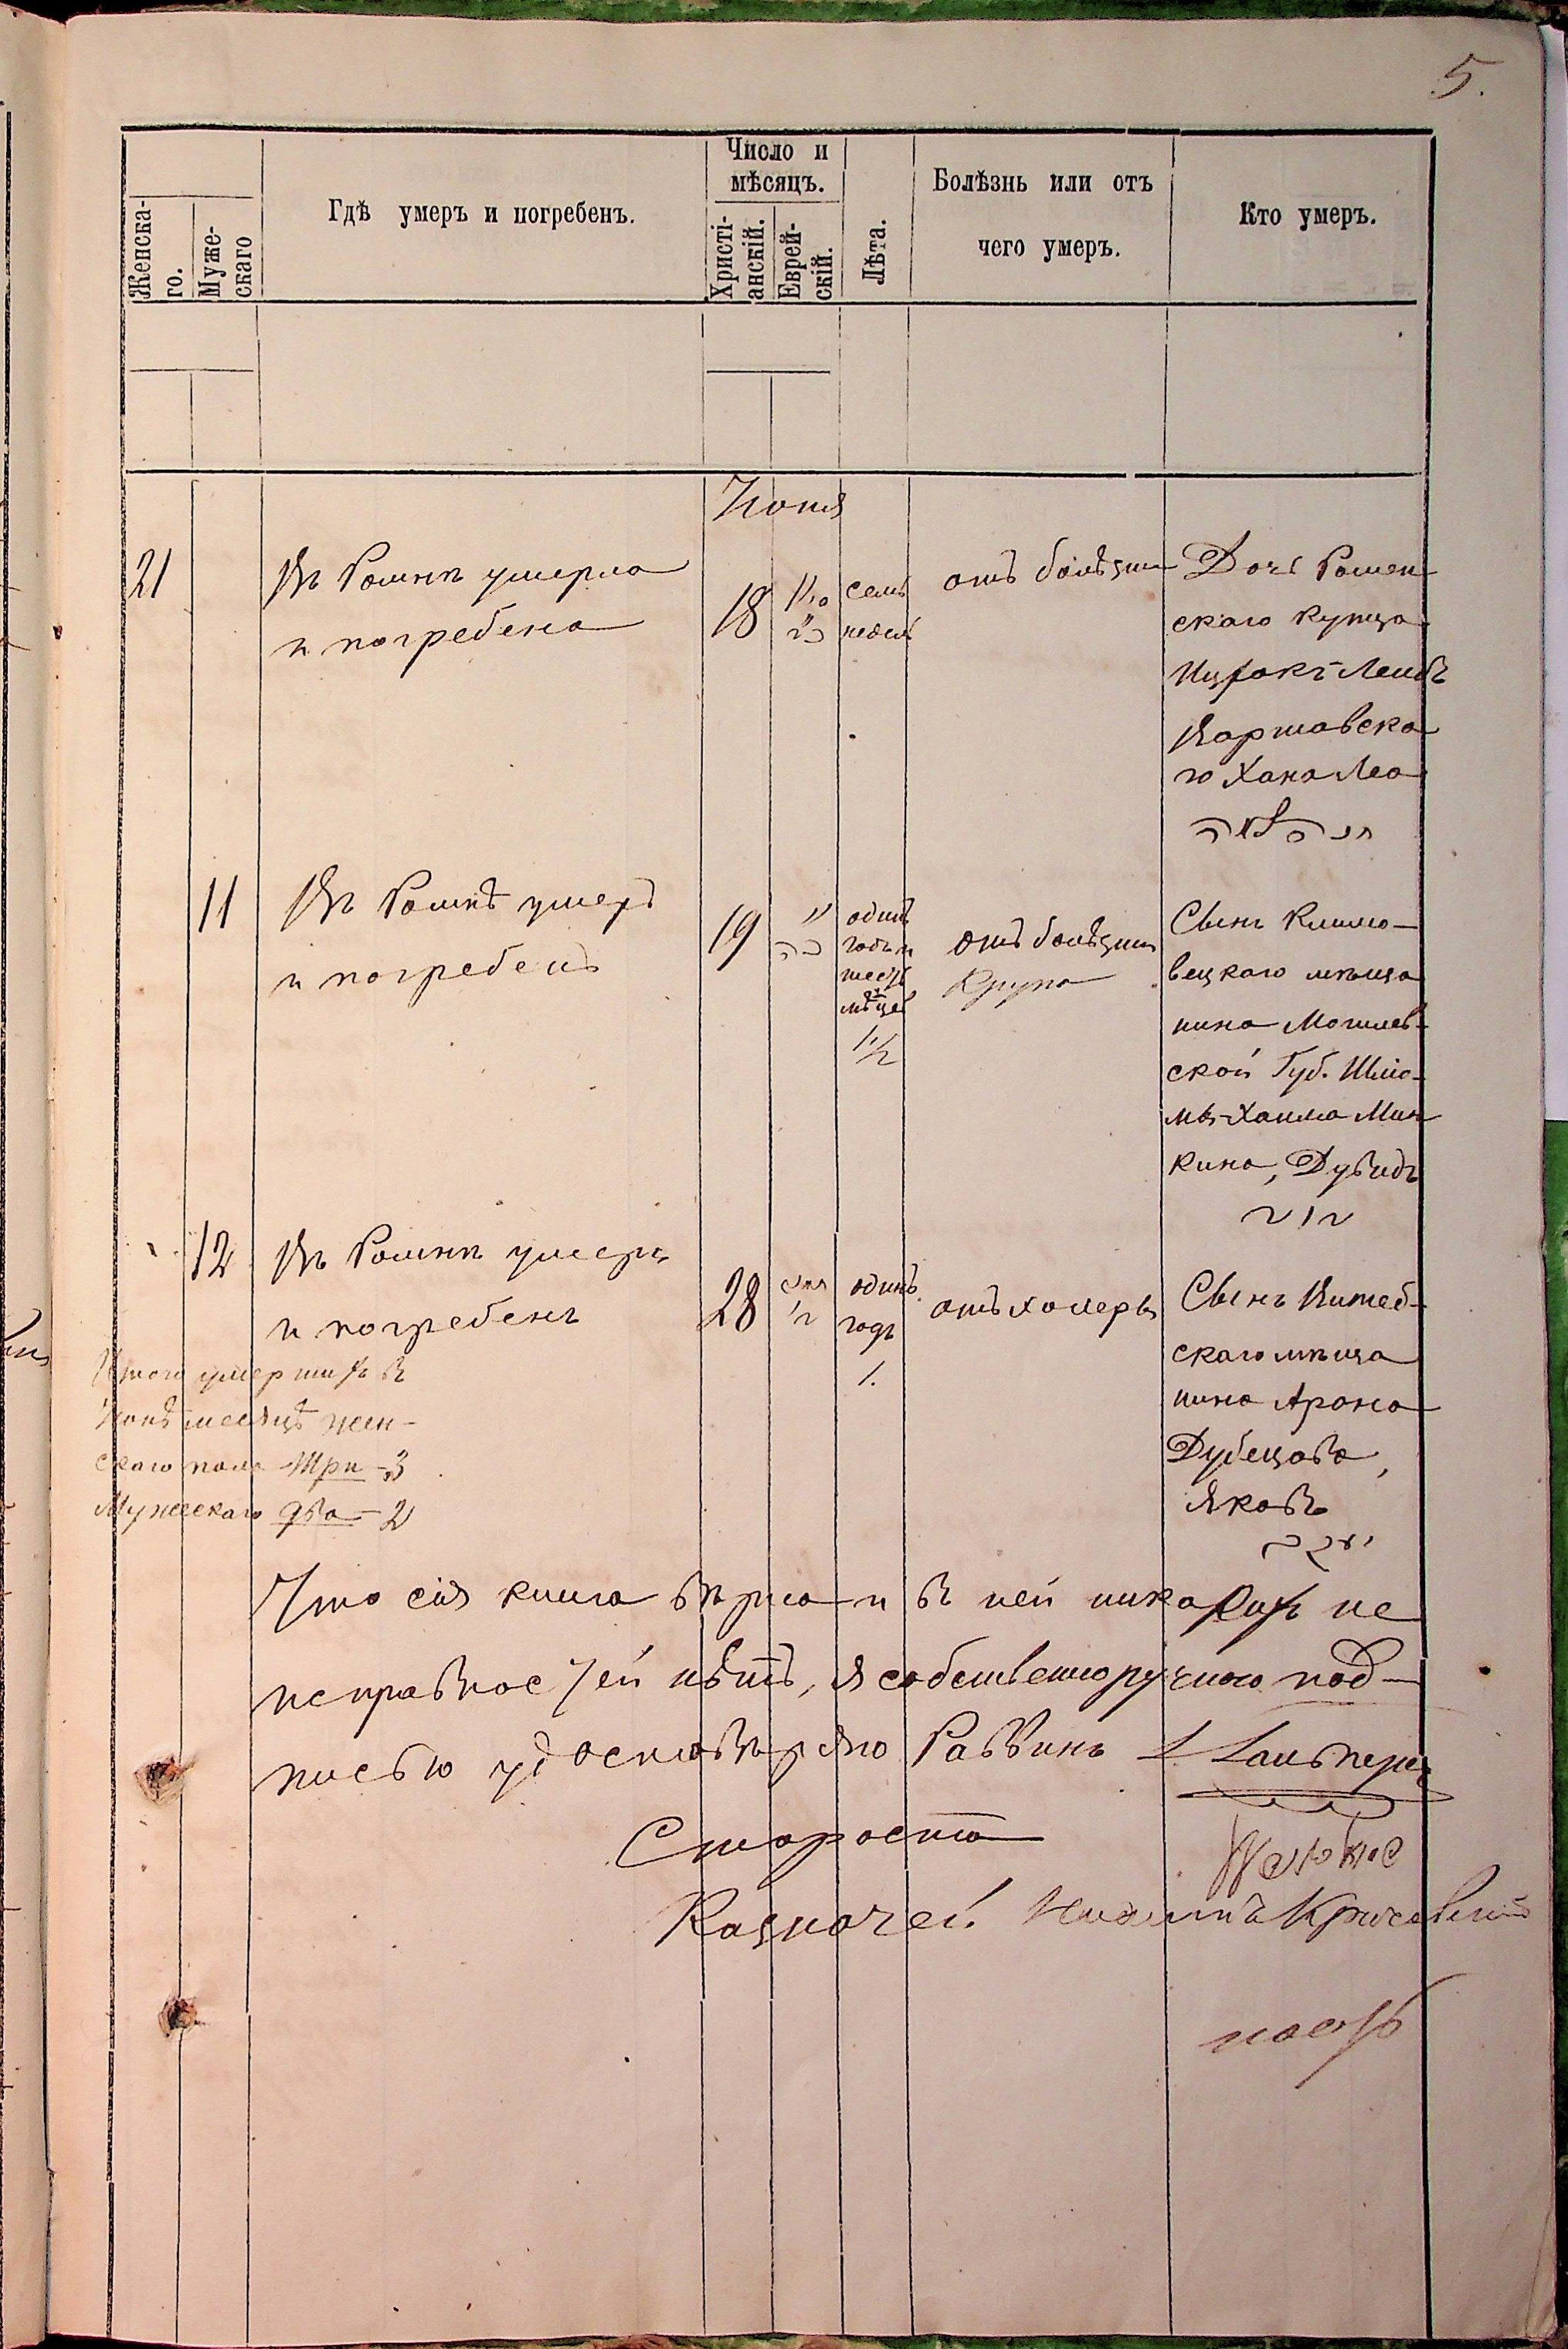 5.
Женска-
го.
Муже-
скаго
Гдѣ умеръ и погребенъ.
Число и
мѣсяцъ.
Христі-
анскій.
Еврей-
скій.
Лѣта.
Болѣзнь или отъ
чего умеръ.
Кто умеръ.
Іюня
21
Въ Ромнѣ умерла
и погребена
18
семь
недель
отъ болѣзни
Дочь Ромен
скаго купца
Ицхокъ Лейбъ
Варшавска
го Хана Леа
חנה לאה
11
Въ Ромнѣ умеръ
и погребенъ
19
одинъ
годъ и
шесть
мѣ-цев
1 1/2
отъ болѣзни
Крупа
Сынъ Климо-
вецкаго мѣща
нина Могилев-
ской Губ. Шло-
мы-Хаима Мин
кина, Дувидъ
דוד
12
Въ Ромнѣ умеръ
и погребенъ
28
одинъ
годъ
1.
отъ холеры
Сынъ Витеб-
скаго мѣща
нина Арона
Дубецова,
Яковъ
יעקב
Итого умершихъ въ
Іюнѣ месяцѣ жен-
скаго пола три - 3
Мужескаго два - 2
Что сія книга вѣрна и въ ней никакихъ не
исправностей нѣтъ, я собственноручною под-
писью удостовѣряю Раввинъ
Староста
Казначей